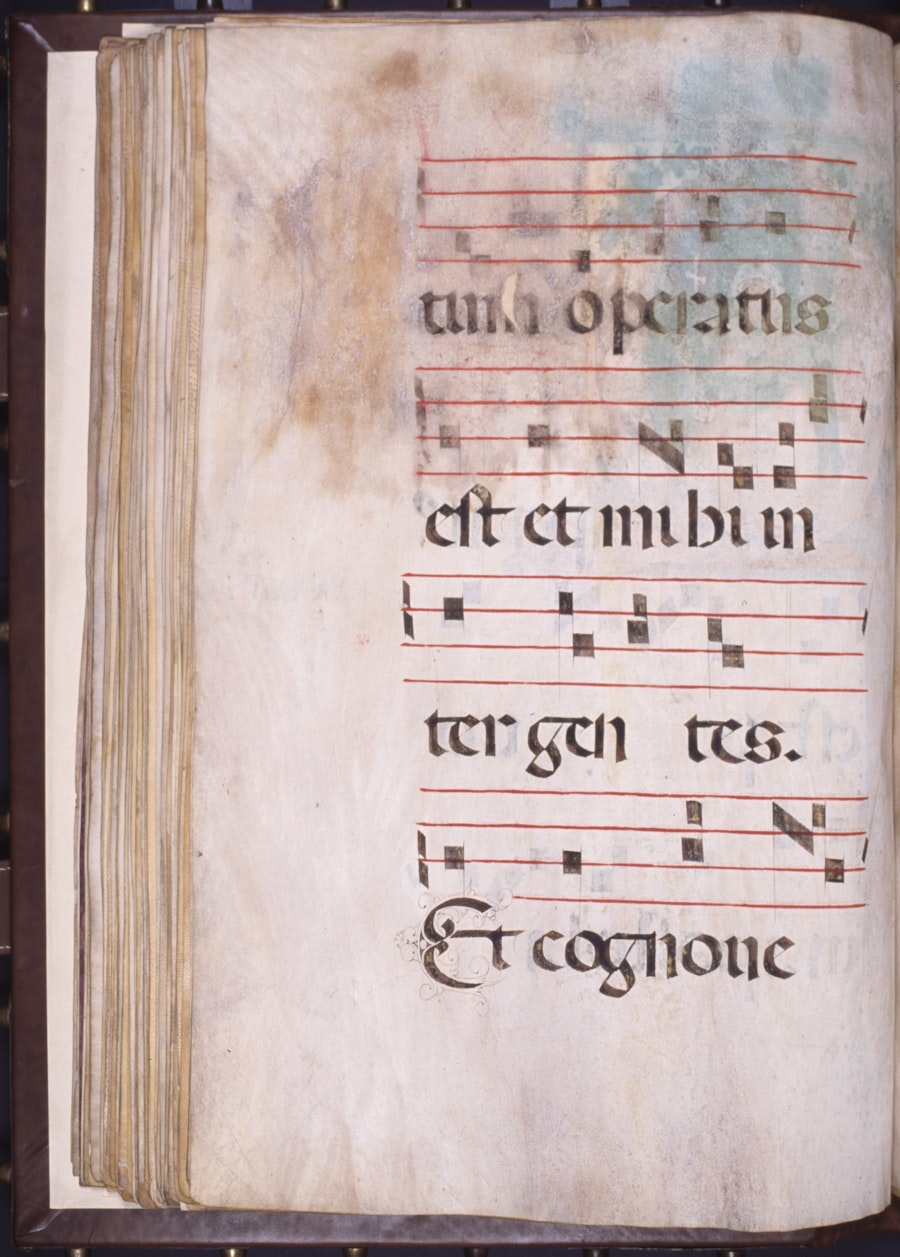 tum operatus
est et mihi in
ter gen tes.
Et cognoue